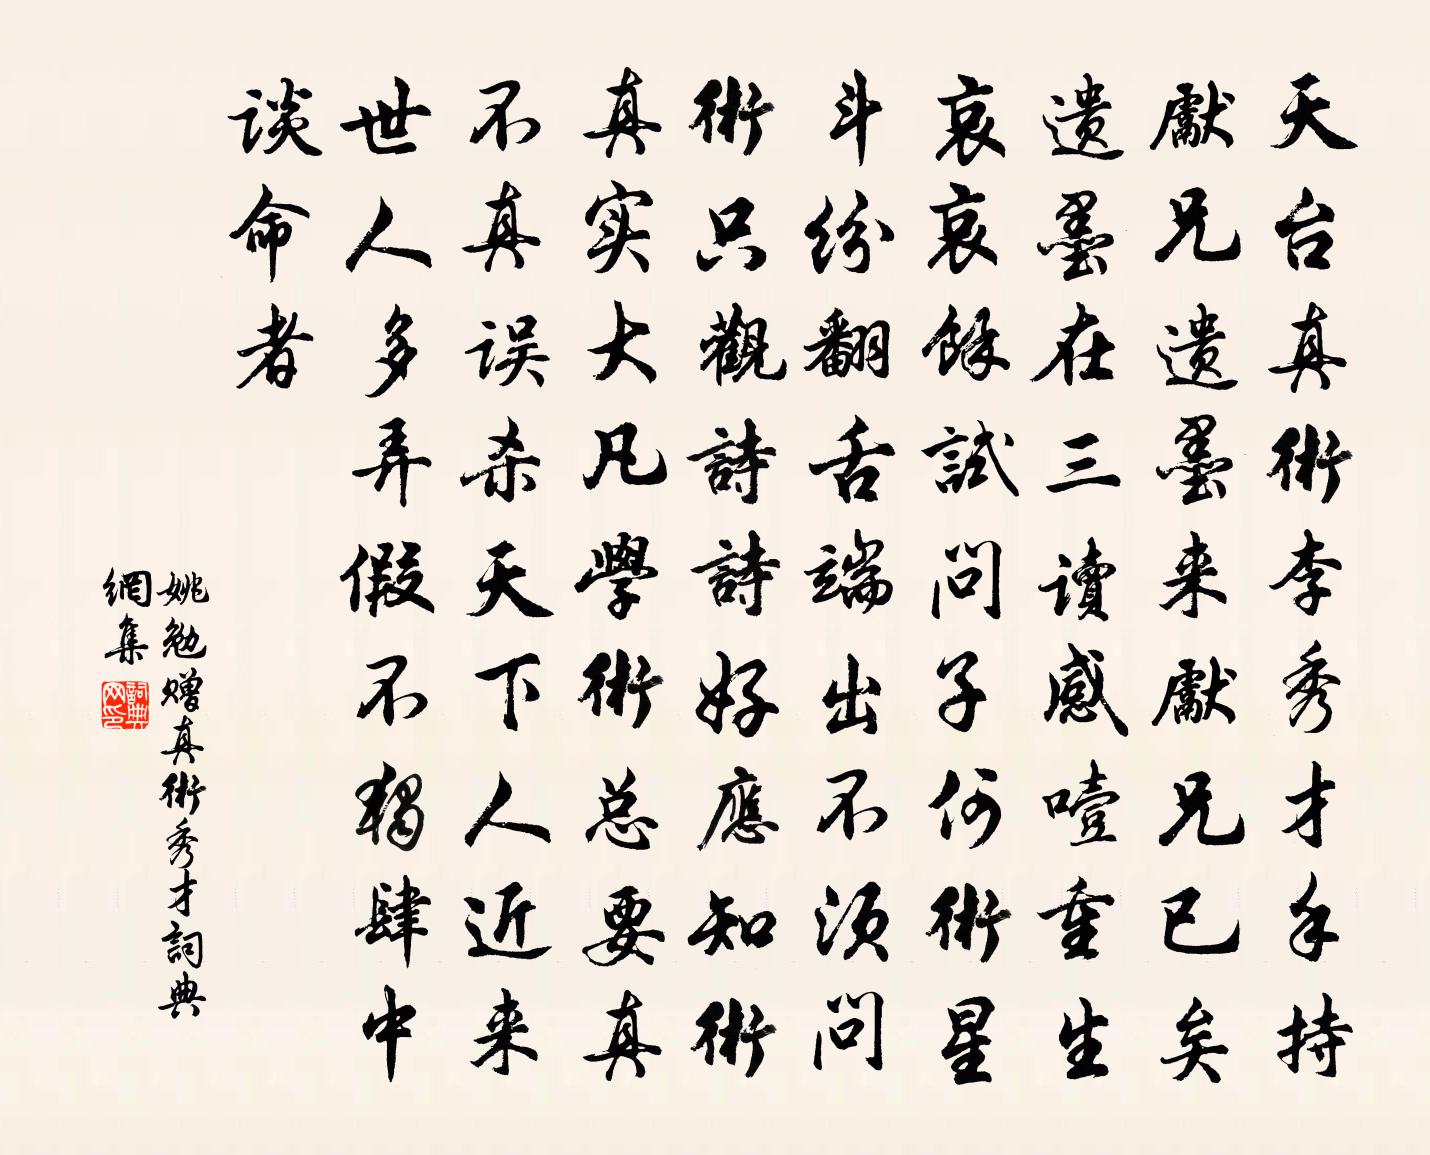 天台真術李秀才手持
獻兄遗墨来獻兄已矣
遗墨在三读感噎重生
哀哀餘試問子何術星
斗纷翻舌端出不须問
術只觀詩詩好應知術
真实大凡學術总要真
不真误杀天下人近来
世人多弄假不独肆中
谈命者
姚勉赠真術秀才詞典
網集
詞典
网印